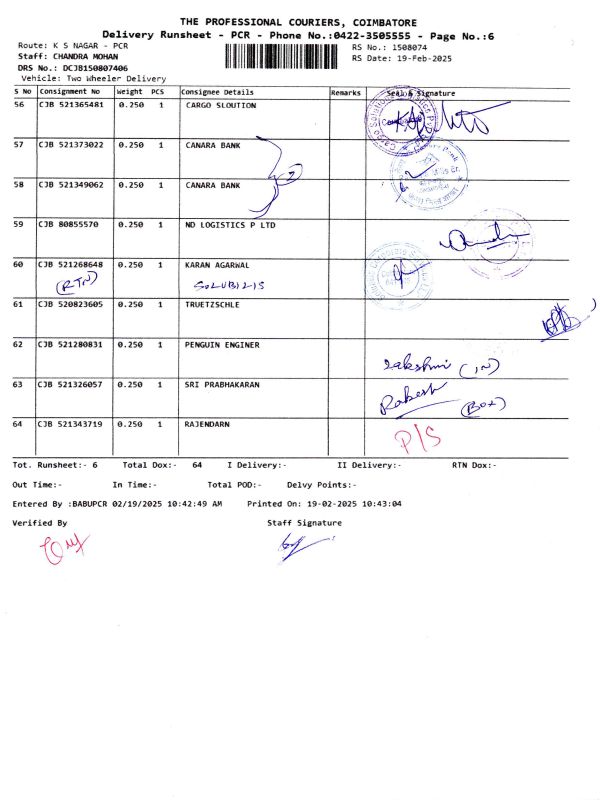 THE PROFESSIONAL COURIERS, COIMBATORE
Delivery Runsheet - PCR - Phone No.:0422-3505555 - Page No.:6
Route: K S NAGAR - PCR
RS No.: 1508074
Staff: CHANDRA MOHAN
RS Date: 19-Feb-2025
DRS No.: DCJB150807406
Vehicle: Two Wheeler Delivery
S No Consignment No Weight PCS Consignee Details Remarks Seal & Signature
56 CJB 521365481 0.250 1 CARGO SLOUTION
57 CJB 521373022 0.250 1 CANARA BANK
2
58 CJB 521349062 0.250 1 CANARA BANK
59 CJB 80855570 0.250 1 ND LOGISTICS P LTD
60 CJB 521268648 0.250 1 KARAN AGARWAL
(RTN) SOLUBILIS
61 CJB 520823605 0.250 1 TRUETZSCHLE
62 CJB 521280831 0.250 1 PENGUIN ENGINER
Lakshmi (IN)
63 CJB 521326057 0.250 1 SRI PRABHAKARAN
Rakesh (BOX)
64 CJB 521343719 0.250 1 RAJENDARN
P/S
Tot. Runsheet:- 6 Total Dox:- 64 I Delivery:- II Delivery:- RTN Dox:-
Out Time:- In Time:- Total POD:- Delvy Points:-
Entered By :BABUPCR 02/19/2025 10:42:49 AM Printed On: 19-02-2025 10:43:04
Verified By Staff Signature